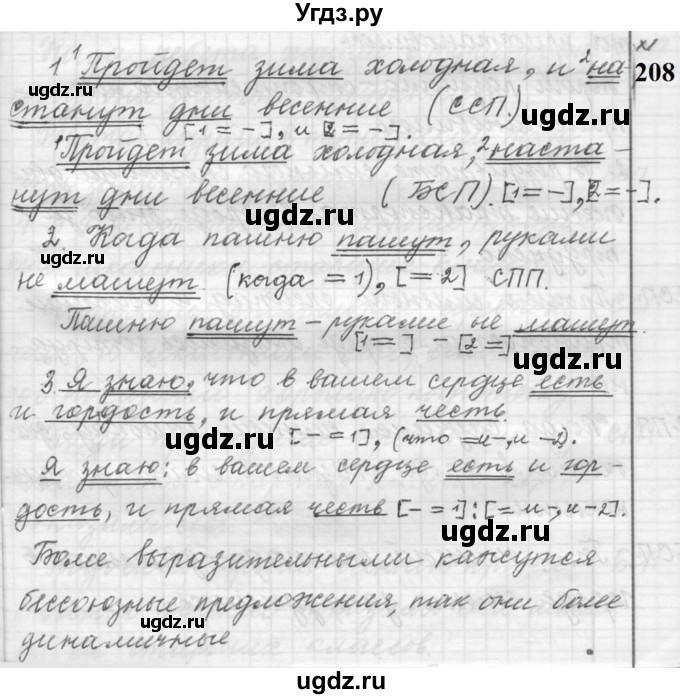 Угдз.ру
1. ¹Пройдет зима холодная, и ²на-
208
станут дни весенние (ССП)
[1 = -], и [2 = -].
ugdz.ru
¹Пройдет зима холодная, ²наста-
нут дни весенние (БСП). [1 = -], [2 = -].
ugdz.ru
2. Когда пашню пашут, руками
не машут. (когда = 1), [= 2] СПП.
ugdz.ru
Пашню пашут - руками не машут.
[1 =] - [2 =]
ugdz.ru
3. Я знаю, что в вашем сердце есть
и гордость, и прямая честь.
ugdz.ru
[- = 1], (что = и -, и - 2).
Я знаю: в вашем сердце есть и гор-
ugdz.ru
дость, и прямая честь [- = 1]: [= и -, и - 2].
Более выразительными кажутся
ugdz.ru
бессоюзные предложения, так они более
динамичные
ugdz.ru